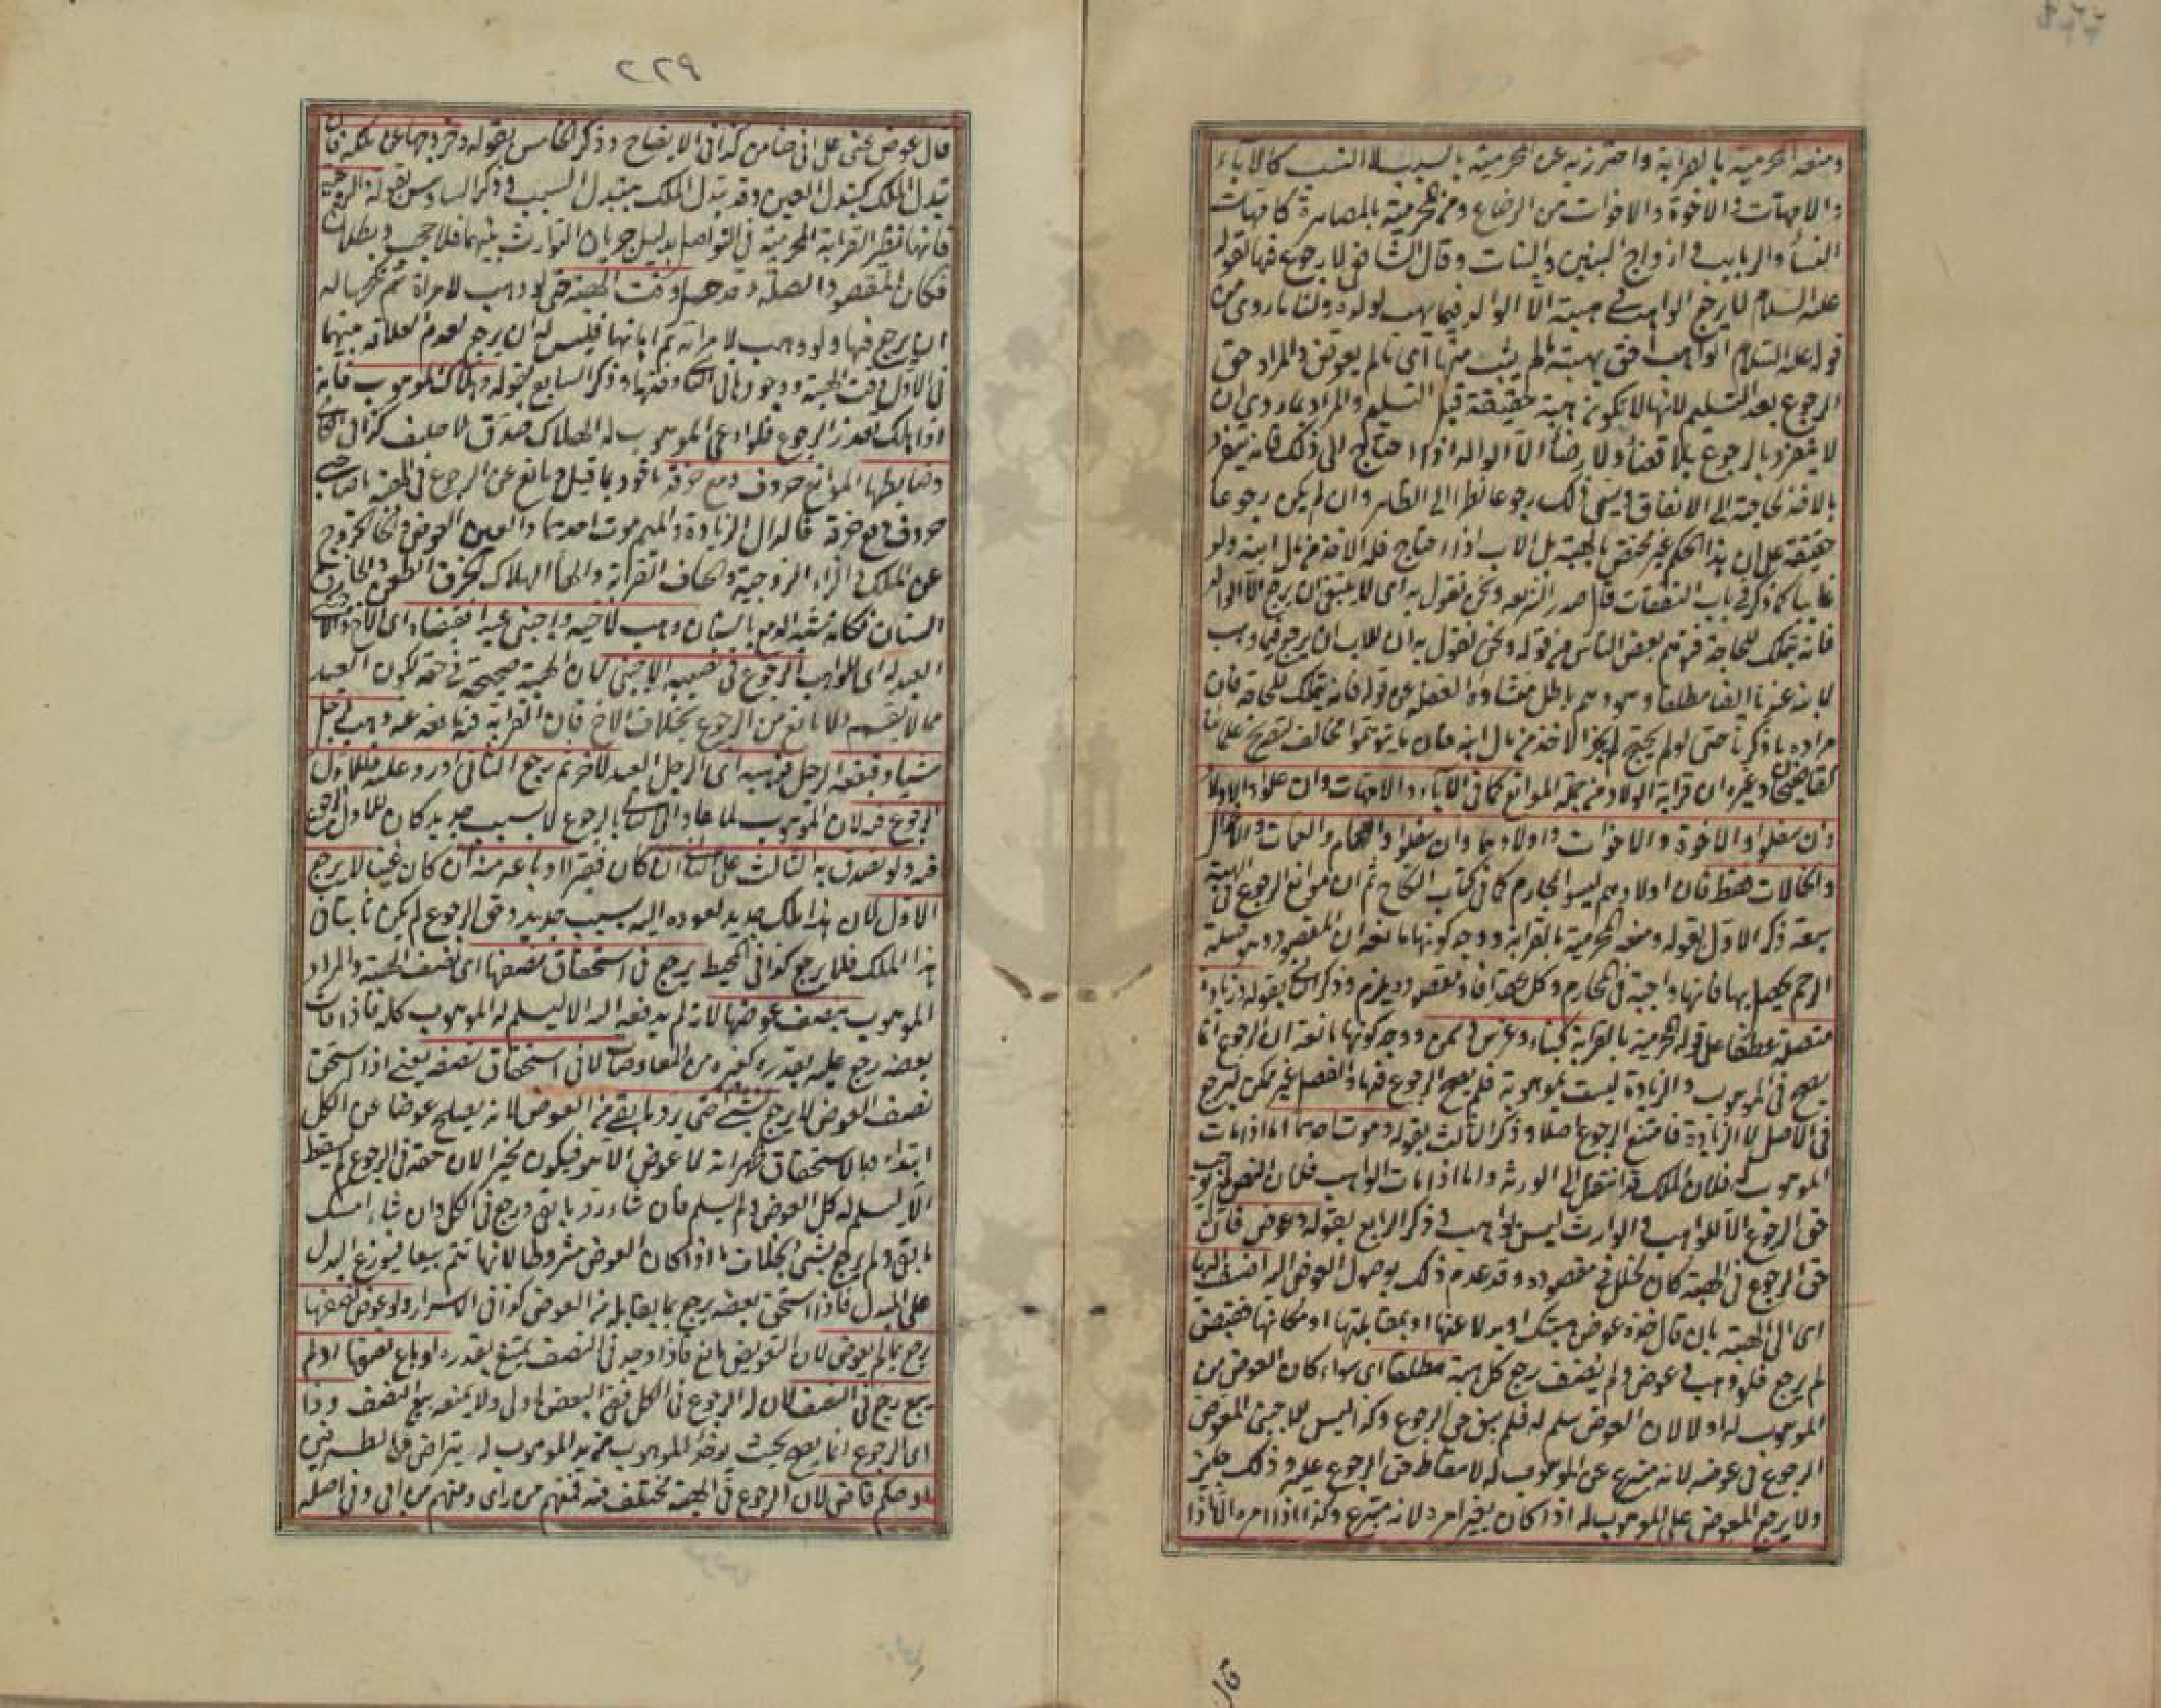 ومنعه المحرمية بالقرابة واحترز به عن المحرمية بالسبب لا النسب كالآباء
والامهات والاخوة والاخوات من الرضاع ومن المحرمية بالمصاهرة كامهات
النسأ والربايب وازواج البنين والبنات وقال الشافعى لا رجوع فيها لقوله
عليه السلام لا يرجع الواهب فى هبته الا الوالد فيما يهب لولده ولنا ما روى من
قوله عليه السلام الواهب احق بهبته ما لم يثب منها اى ما لم يعوض والمراد حق
الرجوع بعد التسليم لانها لا تكون هبة حقيقة قبل التسليم والمراد بما روى ان
لا ينفرد بالرجوع بلا قضأ ولا رضأ الا الوالد اذا احتاج الى ذلك فانه ينفرد
بالاخذ لحاجته الى الانفاق ويسمى ذلك رجوعا نظرا الى الظاهر وان لم يكن رجوعا
حقيقة على ان هذا الحكم غير مختص بالهبة بل الاب اذا احتاج فله الاخذ من مال ابنه ولو
غايبا كما ذكر فى باب النفقات قال صدر الشريعه ونحن نقول به اى لا ينبغى ان يرجع الا الوالد
فانه يتملك للحاجة فتوهم بعض الناس من قوله ونحن نقول به ان للاب ان يرجع فيما وهب
لابنه عندنا ايضا مطلقا وهو وهم باطل منشاؤه الغفلة عن قوله فانه يتملك للحاجة فان
مراده ما ذكرنا حتى لو لم يحتج لم يجز الاخذ من مال ابنه فان ما توهموا مخالف لتصريح علمائنا
كقاضيخان وغيره ان قرابة الولاد من جملة الموانع كما فى الآباء والامهات وان علوا والاولاد
وان سفلوا والاخوة والاخوات واولادهما وان سفلوا والاعمام والعمات والاخوال
والخالات فقط فان اولادهم ليسوا بمحارم كما فى كتاب النكاح ثم ان موانع الرجوع فى الهبة
سبعة ذكر الاول بقوله ومنعه المحرمية بالقرابة ووجه كونها مانعة ان المقصود وهو صلة
الرحم يحصل بها فانها واجبة فى المحارم وكل عقد افاد مقصوده يلزم وذكر الثانى بقوله وزيادة
متصلة عطفا على قوله المحرمية بالقرابة كبناء وغرس وسمن ووجه كونها مانعة ان الرجوع انما
يصح فى الموهوب والزيادة ليست بموهوبة فلم يصح الرجوع فيها والفصل غير ممكن ليرجع
فى الاصل لا الزيادة فامتنع الرجوع اصلا وذكر الثالث بقوله وموت احدهما اما اذا مات
الموهوب له فلان الملك قد انتقل الى الورثة واما اذا مات الواهب فلان النص لم يوجب
حق الرجوع الا للواهب والوارث ليس بواهب وذكر الرابع بقوله وعوض فان
حق الرجوع فى الهبة كان لخلل فى مقصوده وقد عدم ذلك بوصول العوض اليه اضيف اليها
اى الى الهبة بان قال خذه عوض هبتك او بدلا عنها او بمقابلتها او مكانها فقبض
لم يرجع فلو وهب عوض ولم يضف رجع كل بهبته مطلقا اى سواء كان العوض من
الموهوب له او لا لان العوض سلم له فلم يبق حق الرجوع وكذا ليس للاجنبى المعوض
الرجوع فى عوضه لانه متبرع عن الموهوب له لاسقاط حق الرجوع عليه وذلك جايز
ولا يرجع المعوض على الموهوب له اذا كان بغير امره لانه متبرع وكذا اذا امره الا اذا
قال
٢٢٩
قال عوض عنى على انى ضامن كذا فى الايضاح وذكر الخامس بقوله وخروجها عن ملكه فان
تبدل الملك كتبدل العين وقد تبدل الملك بتبدل السبب وذكر السادس بقوله والزوجية
فانها نظير القرابة المحرمية فى التواصل بدليل جريان التوارث بينهما بلا حجب وبطلان
فكان المقصود الصلة وقد حصل وقت الهبة حتى لو وهب لامراة ثم نكحها له
ان يرجع فيها ولو وهب لامراته ثم ابانها فليس له ان يرجع لعدم العلاقة بينهما
فى الاول وقت الهبة ووجودها فى الثانى وقتها وذكر السابع بقوله وهلاك الموهوب فانه
اذا هلك تعذر الرجوع فلو ادعى الموهوب له الهلاك صدق بلا حلف كذا فى الكافى
وضابطها اى الموانع حروف دمع خزقه ماخوذ مما قيل ومانع عن الرجوع فى الهبة يا صاحبى
حروف دمع خزقه فالدال الزيادة والميم موت احدهما والعين العوض والخاء الخروج
عن الملك والزاء الزوجية والقاف القرابة والهاء الهلاك الخزق الطعن والخازق
السنان فكانه شبه الدمع بالسنان وهب لاخيه واجنبى عبدا فقبضاه اى الاخ والاجنبى
العبد له اى للواهب الرجوع فى نصيب الاجنبى لان الهبة صحيحة فى حقه لكون العبد
مما لا يقسم ولا مانع من الرجوع بخلاف الاخ فان القرابة فيه مانعة عنه وهب لرجل
شيئا وقبضه الرجل فوهبه اى الرجل العبد لاخر ثم رجع الثانى او رد عليه فللاول
الرجوع فيه لان الموهوب لما عاد الى الثانى بالرجوع لا بسبب جديد كان للاول الرجوع
فيه ولو تصدق به الثالث على الثانى ان كان فقيرا او باعه منه ان كان غنيا لا يرجع
الاول لان هذا ملك جديد لعوده اليه بسبب جديد وحق الرجوع لم يكن ثابتا فى
هذا الملك فلا يرجع كذا فى المحيط يرجع فى استحقاق نصفها اى نصف الهبة والمراد
الموهوب بنصف عوضها لانه لم يدفعه اليه الا ليسلم له الموهوب كله فاذا فات
بعضه رجع عليه بقدره كغيره من المعاوضات لا فى استحقاق نصفه يعنى اذا استحق
نصف العوض لا يرجع بشئ حتى يرد ما بقى من العوض لانه يصلح عوضا عن الكل
ابتداء وبالاستحقاق ظهر انه لا عوض الا هو فيكون يخير لان حقه فى الرجوع لم يسقط
الا ليسلم له كل العوض ولم يسلم فان شاء رد ما بقى ورجع فى الكل وان شاء امسك
ما بقى ولم يرجع بشئ بخلاف ما اذا كان العوض مشروطا لانها تتم بيعا فيوزع البدل
على المبدل فاذا استحق بعضه يرجع بما يقابله من العوض كذا فى الاسرار ولو عوض نصفها
رجع بما لم يعوض لان التعويض مانع فاذا وجد فى النصف يمتنع بقدره او باع نصفها او لم
يبع رجع فى النصف لان له الرجوع فى الكل ففى البعض اولى ولا يمنعه بيع النصف وذا
اى الرجوع انما يصح بحيث يوخذ الموهوب من يد الموهوب له بتراض من الطرفين
او حكم قاضى لان الرجوع فى الهبة مختلف فيه فمنهم من راى ومنهم من ابى وفى اصله